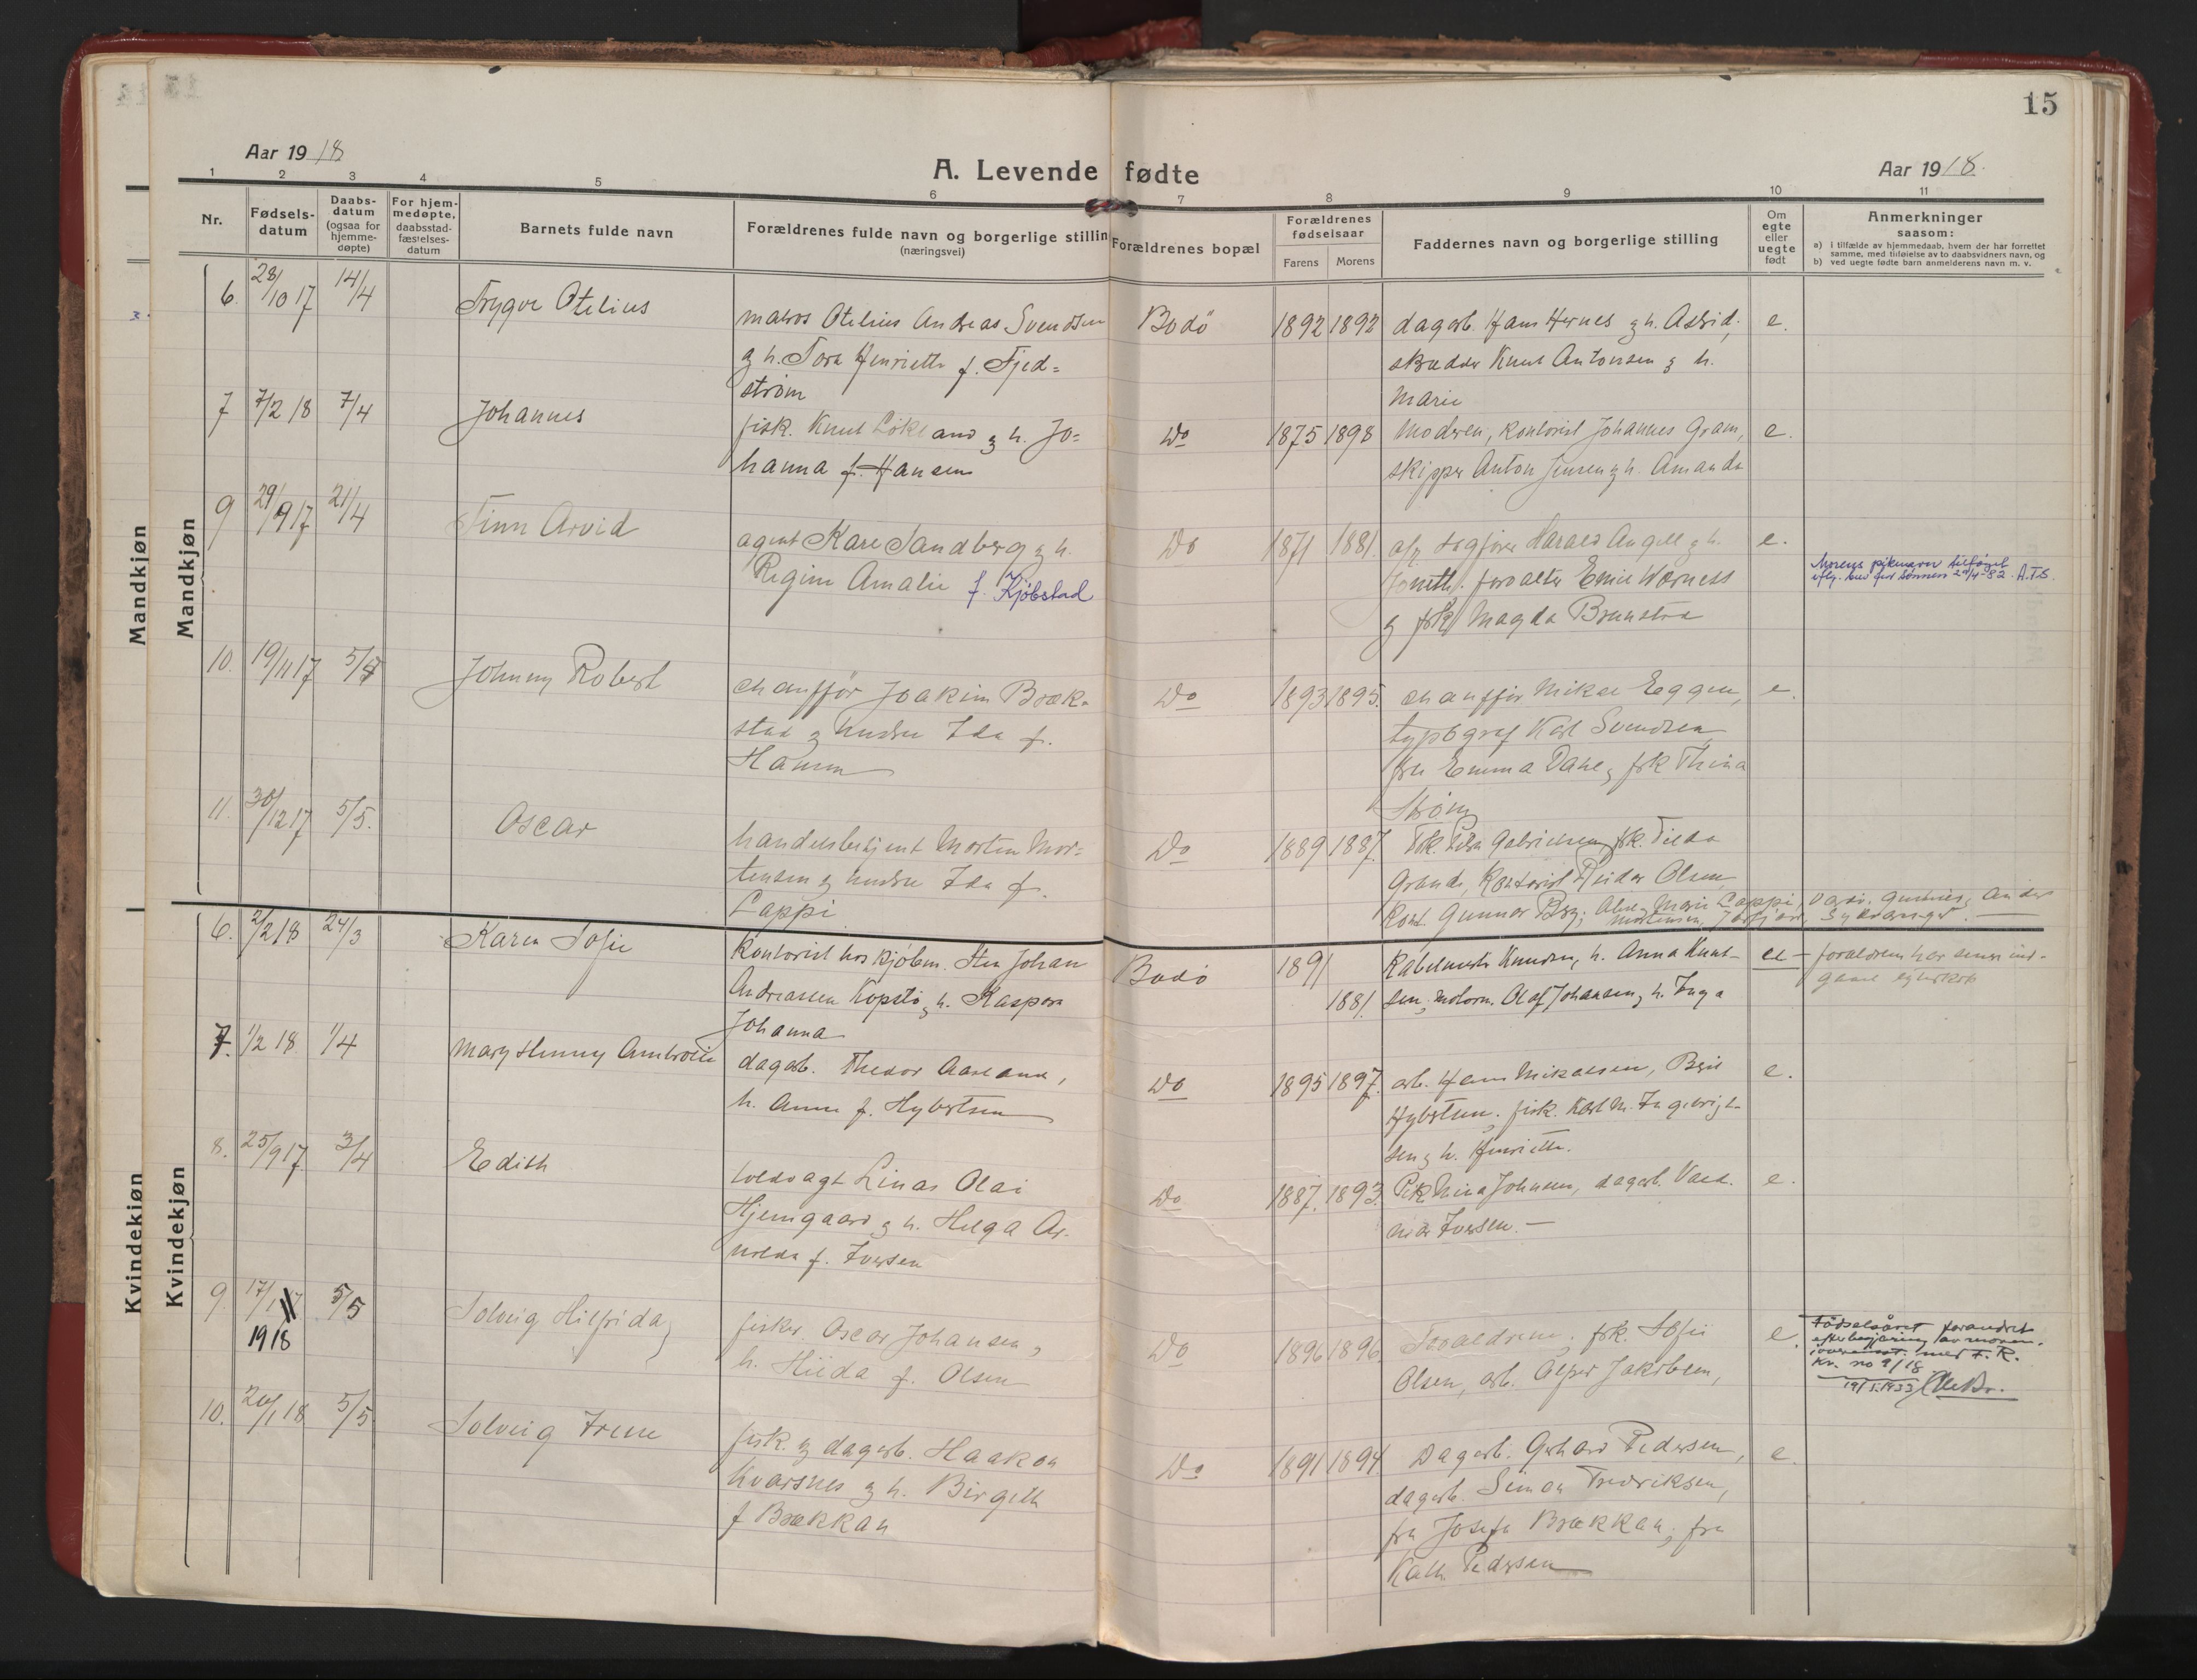 15
Aar 1918
A. Levende fødte
Aar 1918.
1 2 3 4 5 6 7 8 9 10 11
Nr.
Fødsels-
datum
Daabs-
datum
(ogsaa for
hjemme-
døpte)
For hjem-
medøpte,
daabsstad-
fæstelses-
datum
Barnets fulde navn
Forældrenes fulde navn og borgerlige stilling
(næringsvei)
Forældrenes bopæl
Forældrenes
fødselsaar
Farens Morens
Faddernes navn og borgerlige stilling
Om
egte
eller
uegte
født
Anmerkninger
saasom:
a) i tilfælde av hjemmedaab, hvem der har forrettet
samme, med tilføielse av to daabsvidners navn, og
b) ved uegte fødte barn anmelderens navn m. v.
Mandkjøn
Mandkjøn
6. 28/10 17 14/4 Trygve Otelius
matros Otelius Andreas Svendsen
g h. Tora Henriette f. Fjed=
strøm
Bodö 1892 1892
dagarb. Hans Hernes g h. Astrid,
skrædder Knut Antonsen g h.
Marie
e.
7 7/2 18 7/4 Johannes
fisk. Knut Løkeland g h. Jo=
hanna f. Hansen
Do 1875 1898
Moderen, kontorist Johannes Gram,
skipper Anton Jensen g h. Amanda
e.
9 29/9 17 21/4 Finn Arvid
agent Kare Sandberg g h.
Regine Amalie f. Kjöbstad
Do 1871 1881.
Harald Angell g h.
forvalter Emil Wærness
g frk. Magda
e.
Morens pikenavn tilföyet
iflg. brev fra sönnen 29/4-82. A.T.S.
10. 19/11 17 5/5 Johnny Robert
chauffør Joakim Bræk=
stad g hustru Ida f.
Hamm
Do 1893 1895.
chauffør Mikal Eggen,
typograf Karl Svendsen
fru Emma Dahl, frk Thina
Strøm
e.
11. 30/12 17 5/5. Oscar
handelsbetjent Morten Mor=
tensen g hustru Ida f.
Lappi
Do 1889 1887.
Frk. Gabrielsen, frk. Tilda
Kontorist Reidar Olsen
Kont. Gunnar Marie Lappi,
Mortensen,
Kvindekjøn
Kvindekjøn
6. 2/2 18 24/3 Karen Sofie
Kontorist hos kjøbm. Sten Johan
Andreassen Kopstø, h. Kaspara
Johanna
Bodø 1891
1881.
Kabelmester Knudsen, h. Anna Knut-
sen, motorm. Olaf Johansen, h. Inga
ue - forældrene har senere ind-
gaaet egteskab
7. 1/2 18 1/4 Mary Henny Ambrosie
dagarb. Theodor Aaseland,
h. Anna f. Hybertsen
Do 1895 1897.
arb. Hans Mikalsen, Beril
Hybertsen, fisk. Karl M. Ingebrigt-
sen g h. Henriette.
e.
8. 25/9 17 3/4 Edith
toldvagt Linas Olai
Hjemgaard g h. Helga Ar-
nolda f. Iversen
Do 1887. 1893.
Nina Johnsen, dagarb. Vald.
Iversen. —
e.
9. 17/1 17 5/5 Solveig Hilfrida
1918
fisker Oscar Johansen,
h. Hilda f. Olsen
Do 1896 1896.
Forældrene, frk. Sofie
Olsen, arb. Jakobsen,
e.
Fødselsåret forandret
efter begjæring av moren.
i overensst. med F. R.
Kv. no 9/18
19/5.1933
10. 20/1 18 5/5 Solveig Irene
fisk. g dagarb. Haakon
Kvarsnes g h. Birgith
f Brækkan
Do 1891 1894.
Dagarb. Gerhard Pedersen,
dagarb. Simon Fredriksen,
fru Josefa Brækkan, fru
Kath. Pedersen
e.